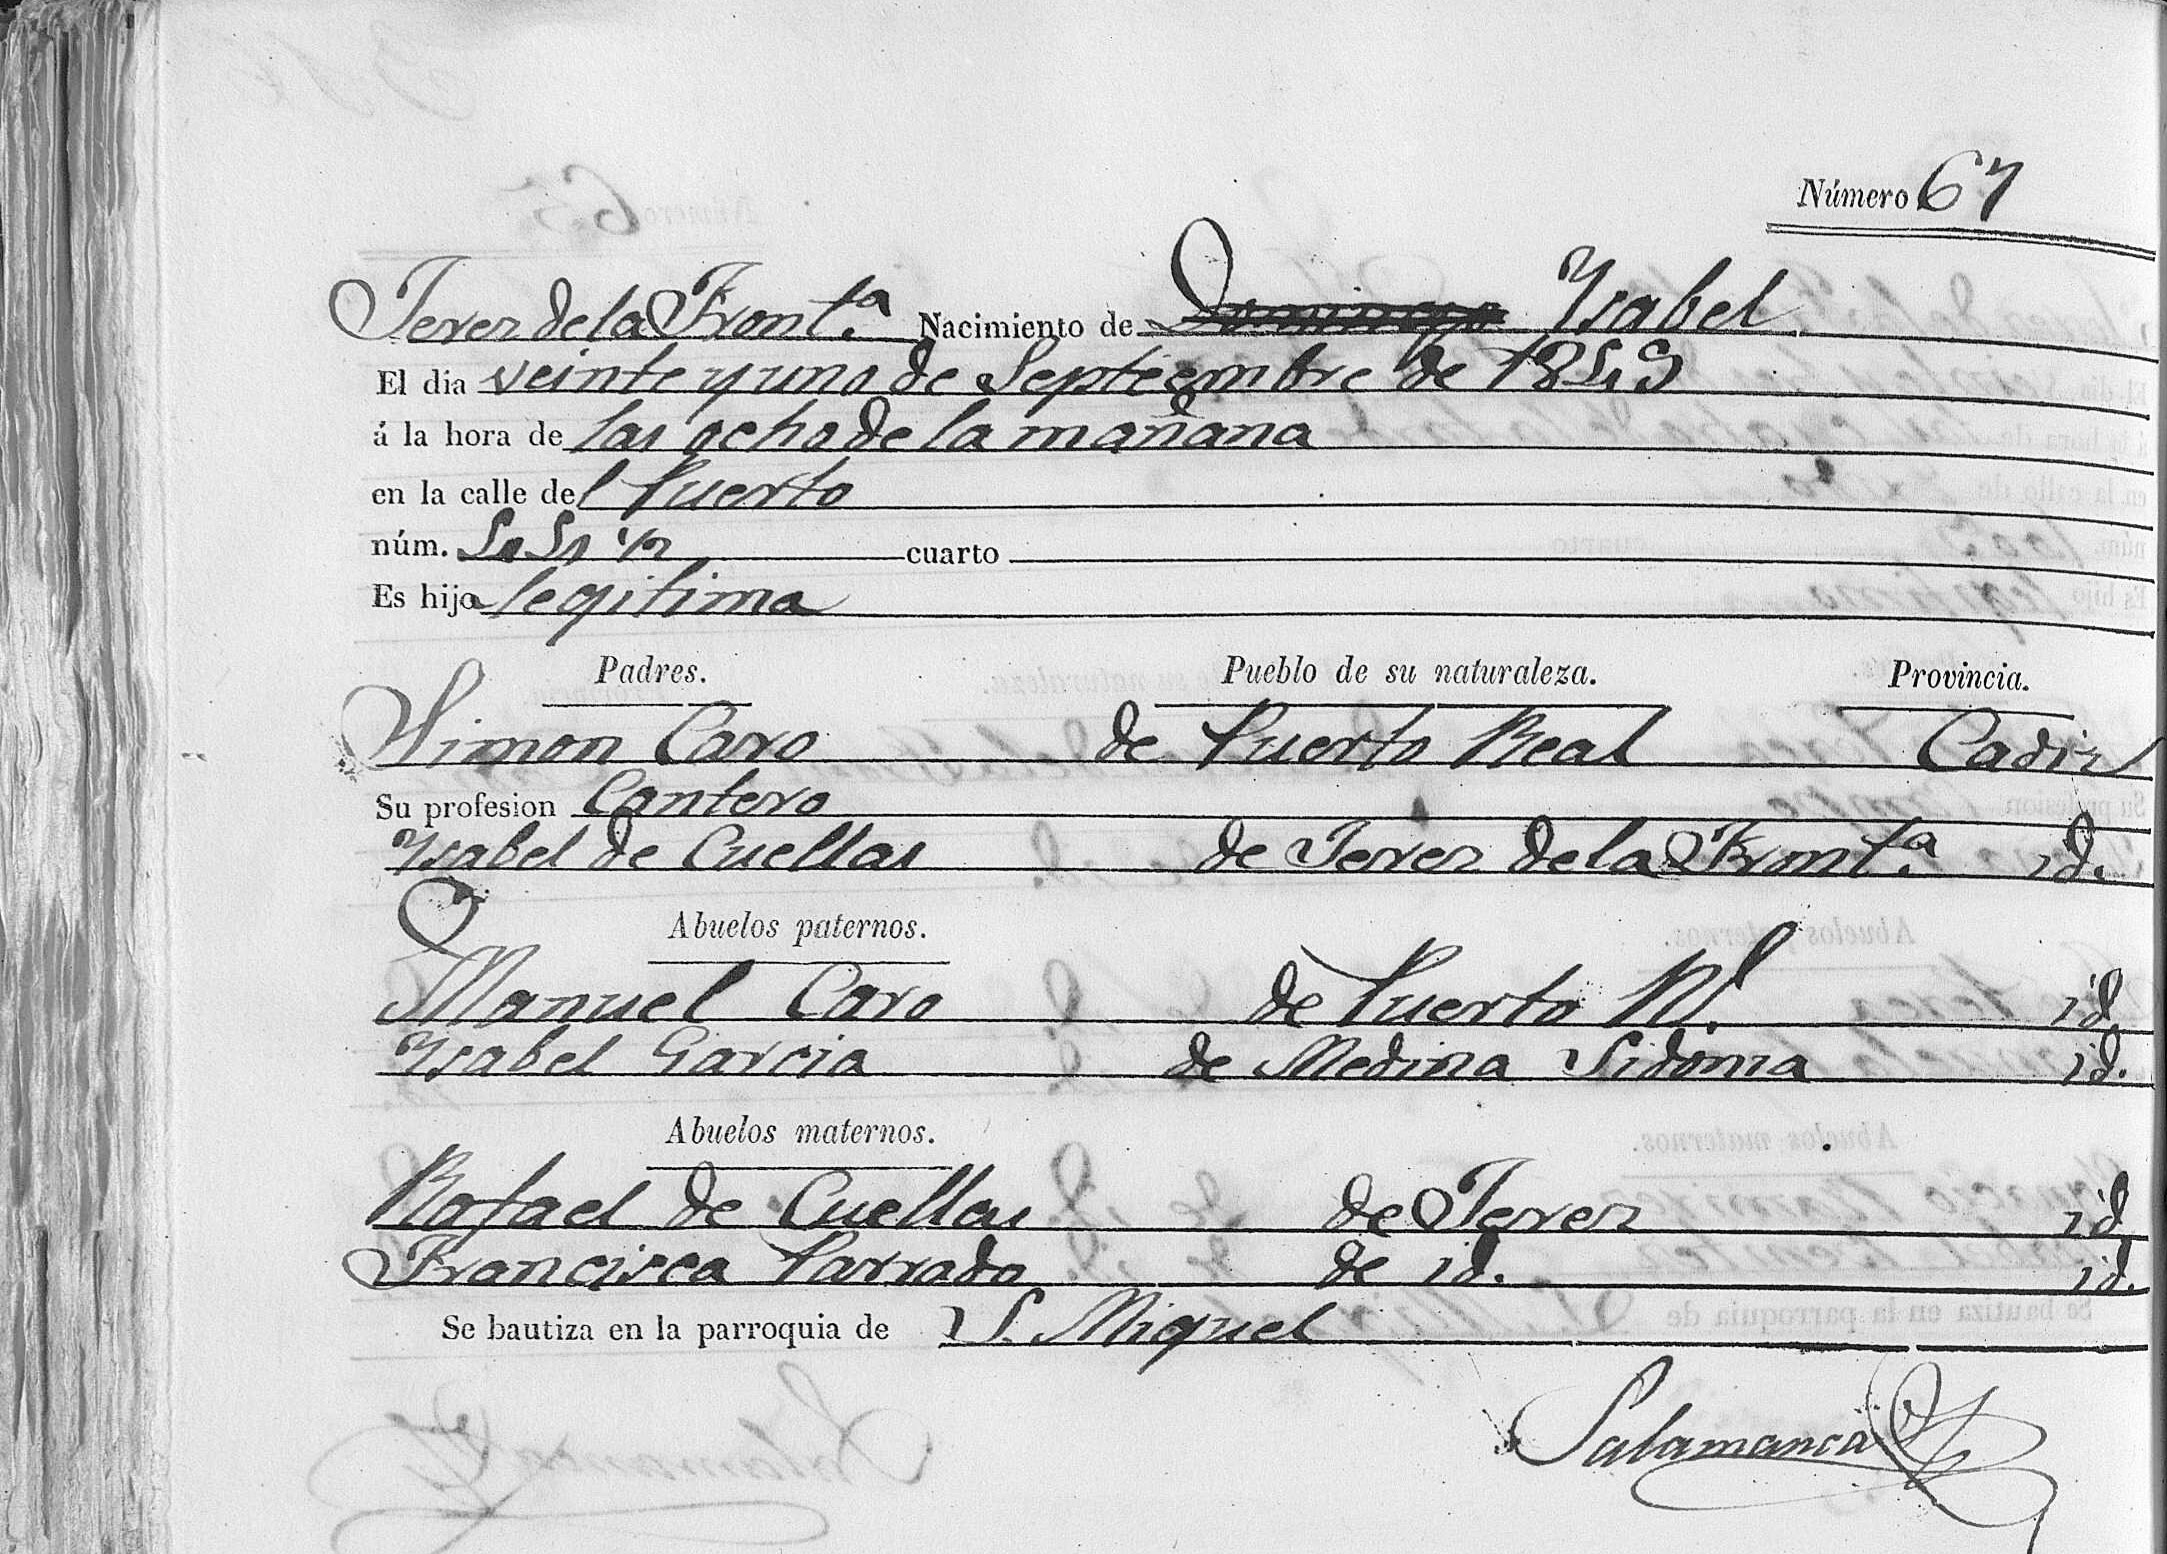 Número 67
Jerez de la Front.ª Nacimiento de Domingo Ysabel
El dia veinte y uno de Septiembre de 1849
á la hora de las ocho de la mañana
en la calle del Puerto
núm. 44 ½ cuarto
Es hija legitima
Padres. Pueblo de su naturaleza. Provincia.
Simon Caro de Puerto Real Cadiz
Su profesion Cantero
Ysabel de Cuellar de Jerez de la Front.ª id.
Abuelos paternos.
Manuel Caro de Puerto Rl. id
Ysabel Garcia de Medina Sidonia id.
Abuelos maternos.
Rafael de Cuellar de Jerez id
Francisca Parrado de id. id.
Se bautiza en la parroquia de S. Miguel
Salamanca